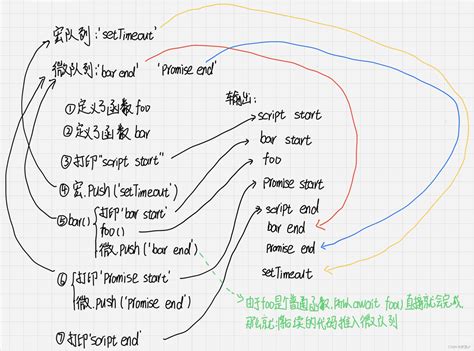 宏队列:'setTimeout'
微队列:'bar end' 'Promise end'
①定义了函数foo
②定义了函数bar
③打印"script start"
④宏.Push('setTimeout')
⑤bar()
打印'bar start'
foo()
微.push('bar end')
⑥打印'Promise start'
微.push('Promise end')
⑦打印'script end'
输出:
script start
bar start
foo
Promise start
script end
bar end
Promise end
setTimeout
由于foo是个普通函数,所以await foo()直接就会完成
那么就将后续的代码推入微队列